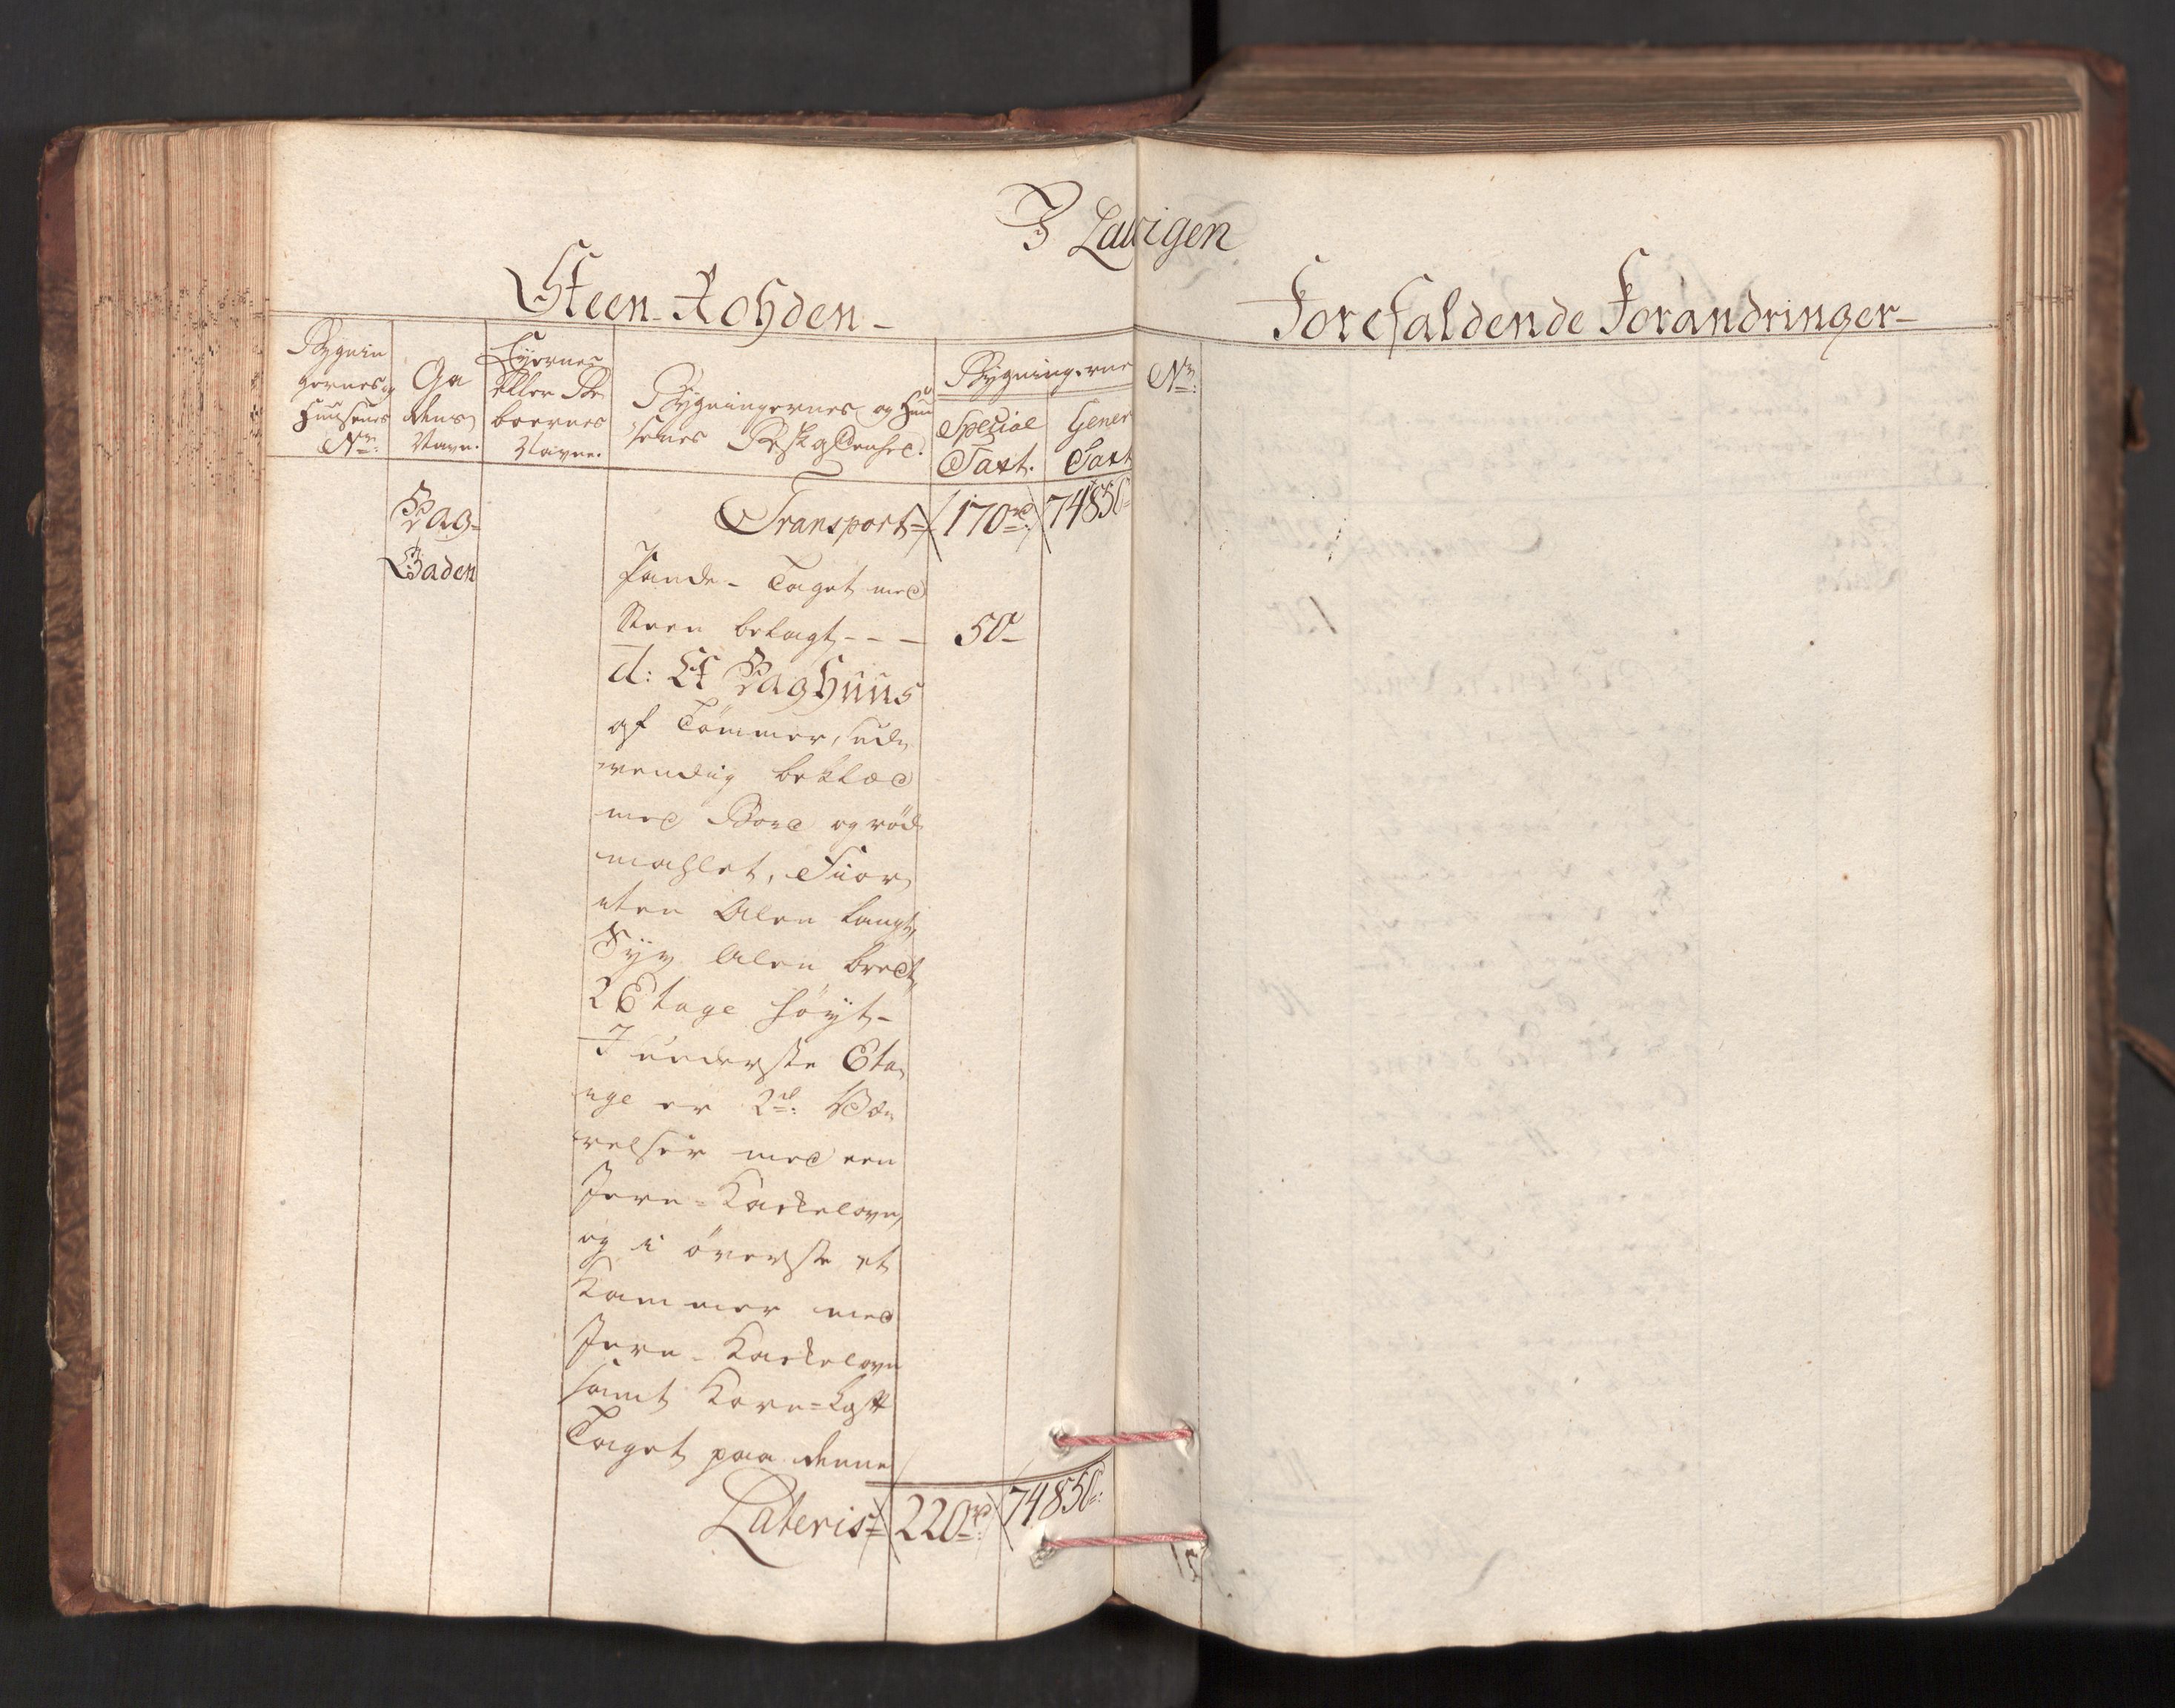 I Laurvigen
Steen-Rohden-
Forefaldende Forandringer-
Bygnin
gernes og
Huusenes
No:
Ga
dens
Navn.
Eyernes
eller Be
boernes
Navne.
Bygningernes og Huu
senes Beskaffenhed.
Bygningerne
Special
Taxt.
Gener
Taxt
No:
Bag-
Gaden
Transport= 170rd 74850=
Pande-Taget med
Steen belagt - - - 50-
d: Et Baghuus
af Tömmer, ud¬
vendig beklæd
med Bord og röd
mahlet, Fior¬
ten Alen langt,
Syv Alen bredt,
2 Etage höyt-
I underste Eta¬
ge er 2de: Væ¬
relser med een
Jern-Kackelovn,
og i överste et
Kammer med
Jern-Kackelovn
samt Korn=Loft
Taget paa denne
Lateris= 220rd 74850=